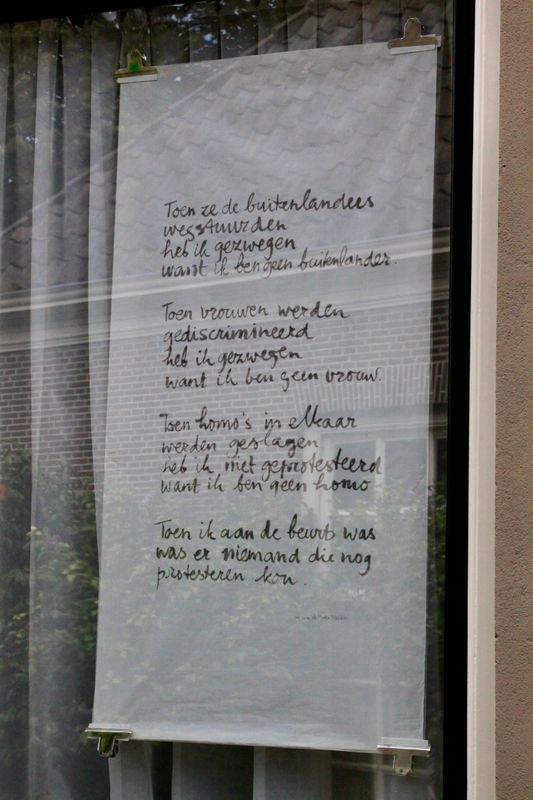 Toen ze de buitenlanders
wegstuurden
heb ik gezwegen
want ik ben geen buitenlander.
Toen vrouwen werden
gediscrimineerd
heb ik gezwegen
want ik ben geen vrouw.
Toen homo's in elkaar
werden geslagen
heb ik niet geprotesteerd
want ik ben geen homo
Toen ik aan de beurt was
was er niemand die nog
protesteren kon.